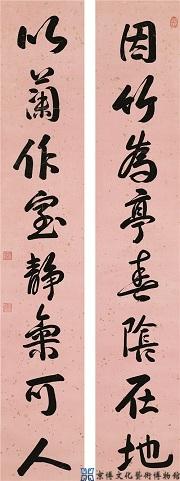 因竹為亭春陰在地
以蘭作室靜氣可人
京博文化藝術博物館